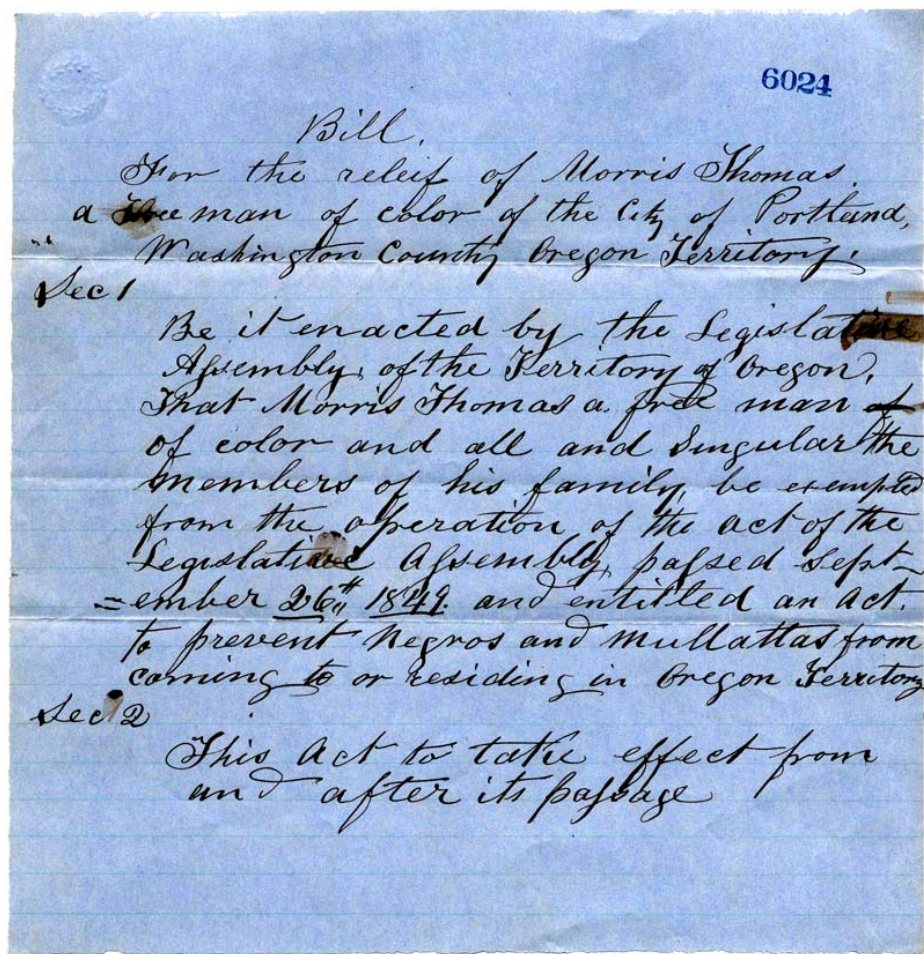 6024
Bill.
For the releif of Morris Thomas.
a free man of color of the City of Portland,
Washington County Oregon Territory.
Sec 1
Be it enacted by the Legislative
Assembly, of the Territory of Oregon,
That Morris Thomas a free man of
of color and all and Singular the
members of his family, be exempted
from the operation of the act of the
Legislative Assembly, passed Sept-
=ember 26th 1849. and entitled an Act.
to prevent Negros and Mullattas from
coming to or residing in Oregon Territory
Sec 2
This Act to take effect from
and after its passage